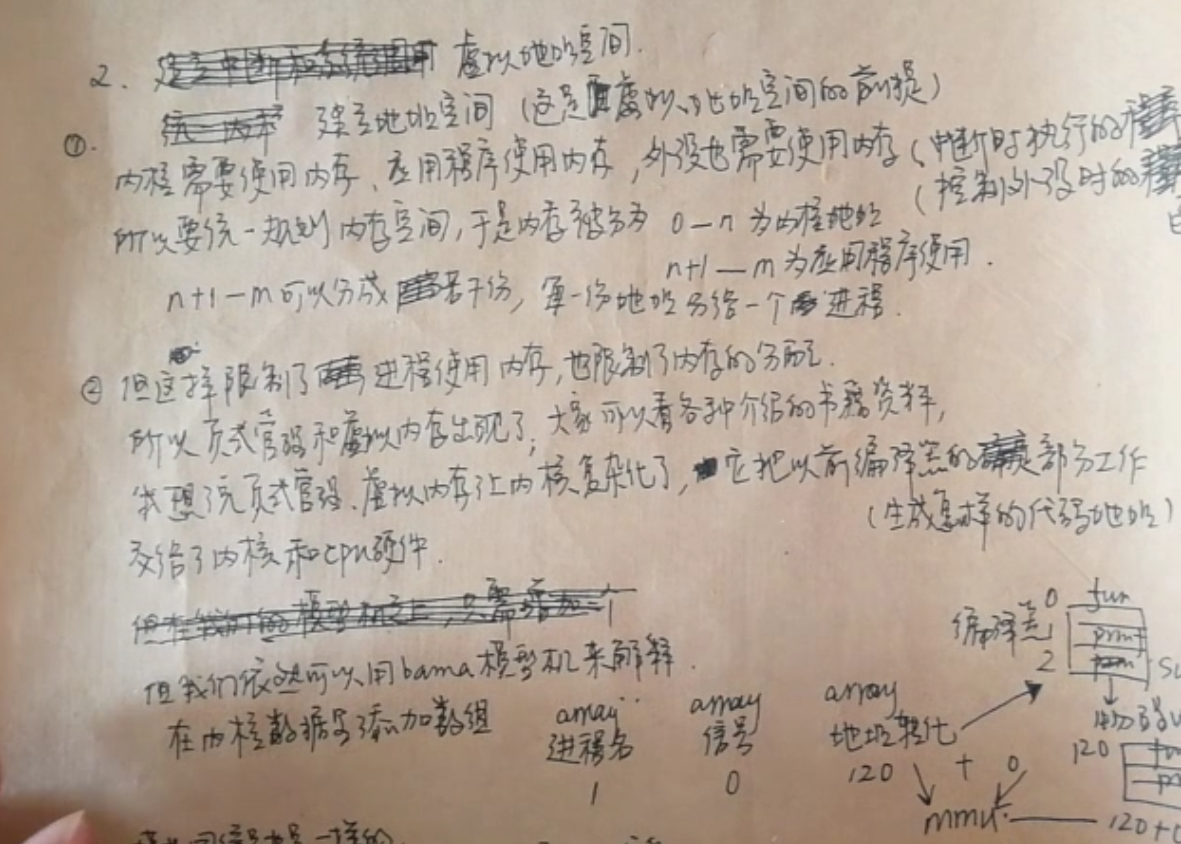 2. 虚拟地址空间.
①. 建立地址空间 (这是虚拟地址空间的前提)
内核需要使用内存、应用程序使用内存, 外设也需要使用内存 (中断时执行的程序
(控制外设时的
所以要统一规划内存空间, 于是内存被分为 0—n 为内核地址
n+1—m 为应用程序使用.
n+1—m 可以分成若干份, 每一份地址分给一个进程.
② 但这样限制了进程使用内存, 也限制了内存的分配.
所以页式管理和虚拟内存出现了, 大家可以看各种介绍的书籍资料,
我想了完页式管理、虚拟内存让内核复杂化了, 它把以前编译器的部分工作
(生成怎样的代码地址)
交给了内核和cpu硬件.
但在我们的模型机之上, 只需增加一个
但我们依然可以用bama模型机来解释.
在内核数据里添加数组
array 进程名 1
array 信号 0
array 地址转化 120
+ 0
mmu — 120+0
编译器
0 fun
1 print
2
120 fun